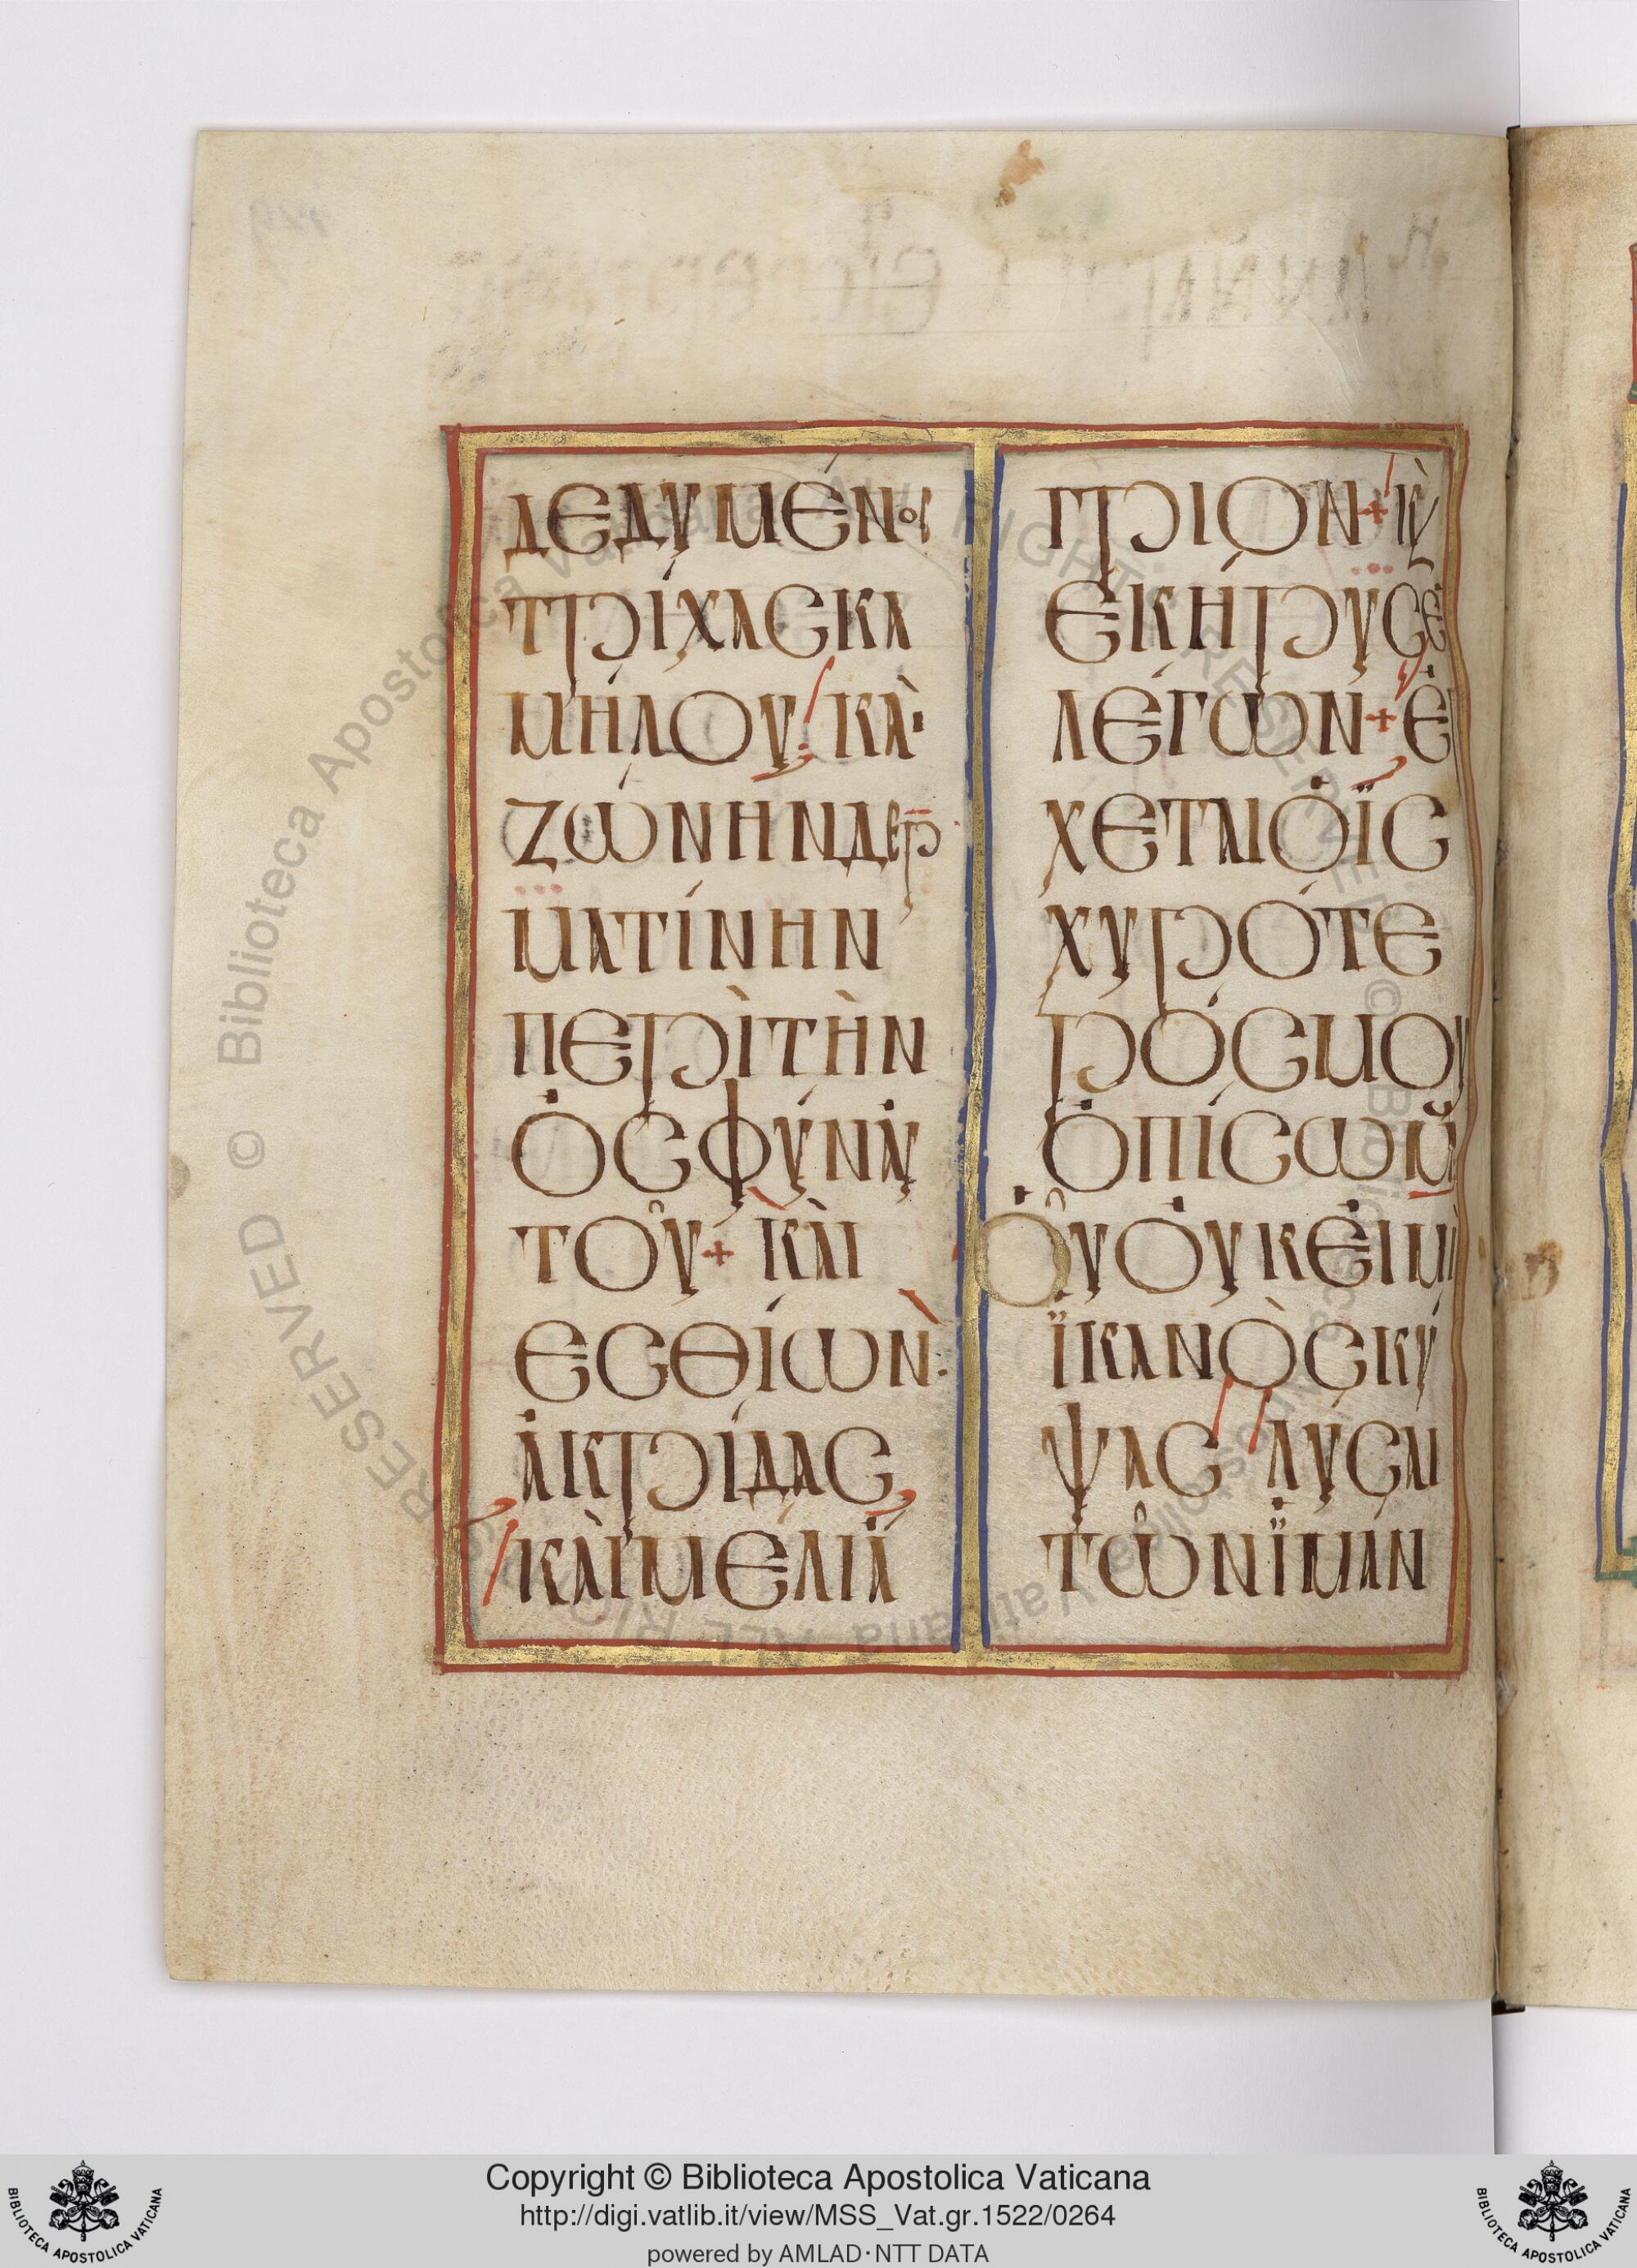 ΔΕΔΥΜΈΝΟΣ
ΤΡΊΧΑΣΚΑ
ΜΉΛΟΥ· ΚΑῚ
ΖΏΝΗΝΔΕΡ
ΜΑΤΊΝΗΝ
ΠΕΡῚΤῊΝ
ὈΣΦΎΝἈΥ
ΤΟΥ͂+ ΚΑῚ
ΕΣΘΊΩΝ·
ἈΚΡΊΔΑΣ
ΚΑῚΜΕΛΙἌ
ΓΡΙΟΝ+ Κ̀
ΕΚΉΡΥΣΕ
ΛΈΓΩΝ+ ἜΡ
ΧΕΤΑΙὉΪΣ
ΧΥΡΌΤΕ
ΡΌΣΜΟΥ
ὈΠΊΣΩΜȢ
ὉΥ͂ὈΥΚἘΙΜῚ
ΪΚΑΝῸΣΚΎ
ΨΑΣ ΛΥ͂ΣΑΙ
ΤΩ͂ΝΪΜΆΝ
Copyright © Biblioteca Apostolica Vaticana
http://digi.vatlib.it/view/MSS_Vat.gr.1522/0264
powered by AMLAD·NTT DATA
BIBLIOTECA APOSTOLICA VATICANA
BIBLIOTECA APOSTOLICA VATICANA